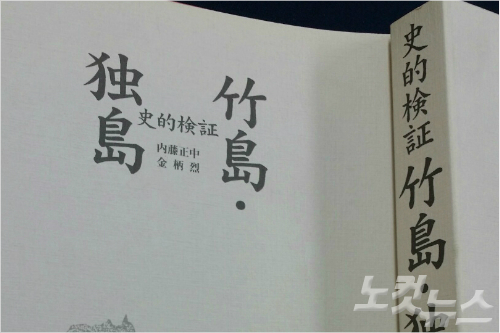 竹島・
独島
史的検証
内藤正中
金柄烈
史的検証 竹島・独
노컷뉴스